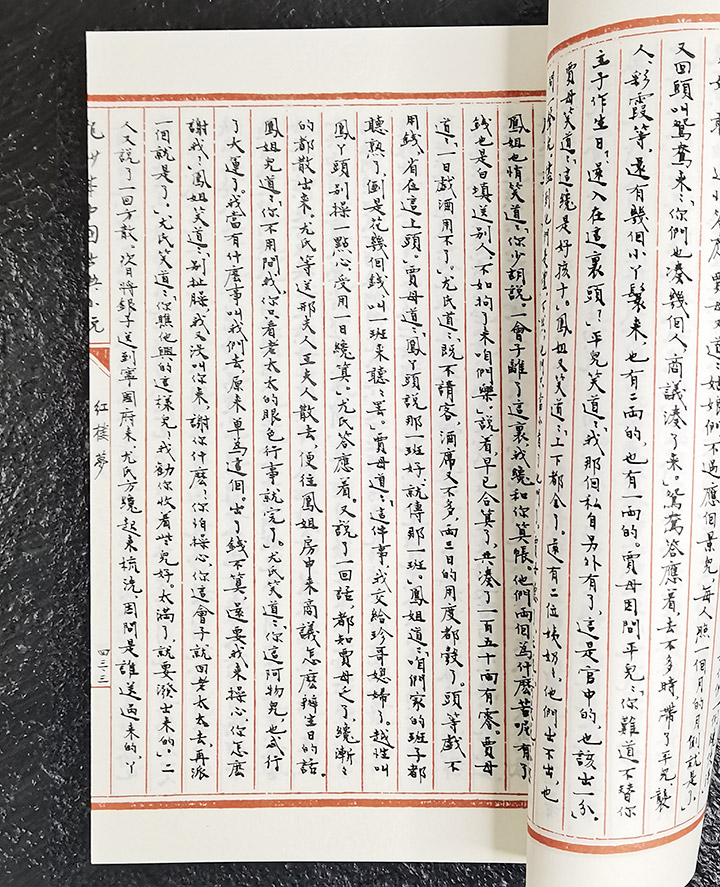 賈母道：“姑娘們不過應個景兒，每人照一個月的月例就是了。”
又回頭叫鴛鴦來：“你們也湊幾個人，商議湊了來。”鴛鴦答應着，去不多時，帶了平兒、襲
人、彩霞等，還有幾個小丫鬟來，也有二兩的，也有一兩的。賈母因問平兒：“你難道不替你
主子作生日，還入在這裏頭？”平兒笑道：“我那個私自另外有了，這是官中的，也該出一分。”
賈母笑道：“這纔是好孩子。”鳳姐又笑道：“上下都全了。還有二位姨奶〻，他們出不出，也
鳳姐也悄笑道：“你少胡說，一會子離了這裏，我纔和你算帳。他們兩個為什麼苦呢？有了
錢也是白填送別人，不如拘了來咱們樂。”說着，早已合算了，共湊了一百五十兩有零。賈母
道：“一日戲酒用不了。”尤氏道：“既不請客，酒席又不多，兩三日的用度都彀了。頭等，戲不
用錢，省在這上頭。”賈母道：“鳳丫頭說那一班好，就傳那一班。”鳳姐道：“咱們家的班子都
聽熟了，倒是花幾個錢，叫一班來聽〻罷。”賈母道：“這件事，我交給珍哥媳婦了。越性叫
鳳丫頭別操一點心，受用一日纔算。”尤氏答應着。又說了一回話，都知賈母乏了，纔漸〻
的都散出來。尤氏等送邢夫人王夫人散去，便往鳳姐房中來商議怎麼辦生日的話。
鳳姐兒道：“你不用問我，你只看老太太的眼色行事就完了。”尤氏笑道：“你這阿物兒，也忒行
了大運了。我當有什麼事叫我們去，原來單為這個。出了錢不算，還要我來操心，你怎麼
謝我？”鳳姐笑道：“別扯臊，我又沒叫你來，謝你什麼！你怕操心，你這會子就回老太太去，再派
一個就是了。”尤氏笑道：“你瞧他興的這樣兒！我勸你收着些兒好。太滿了，就要潑出來的。”二
人又說了一回方散。次日將銀子送到寧國府來，尤氏方纔起來梳洗，因問是誰送過來的，丫
紅樓夢
四三·三